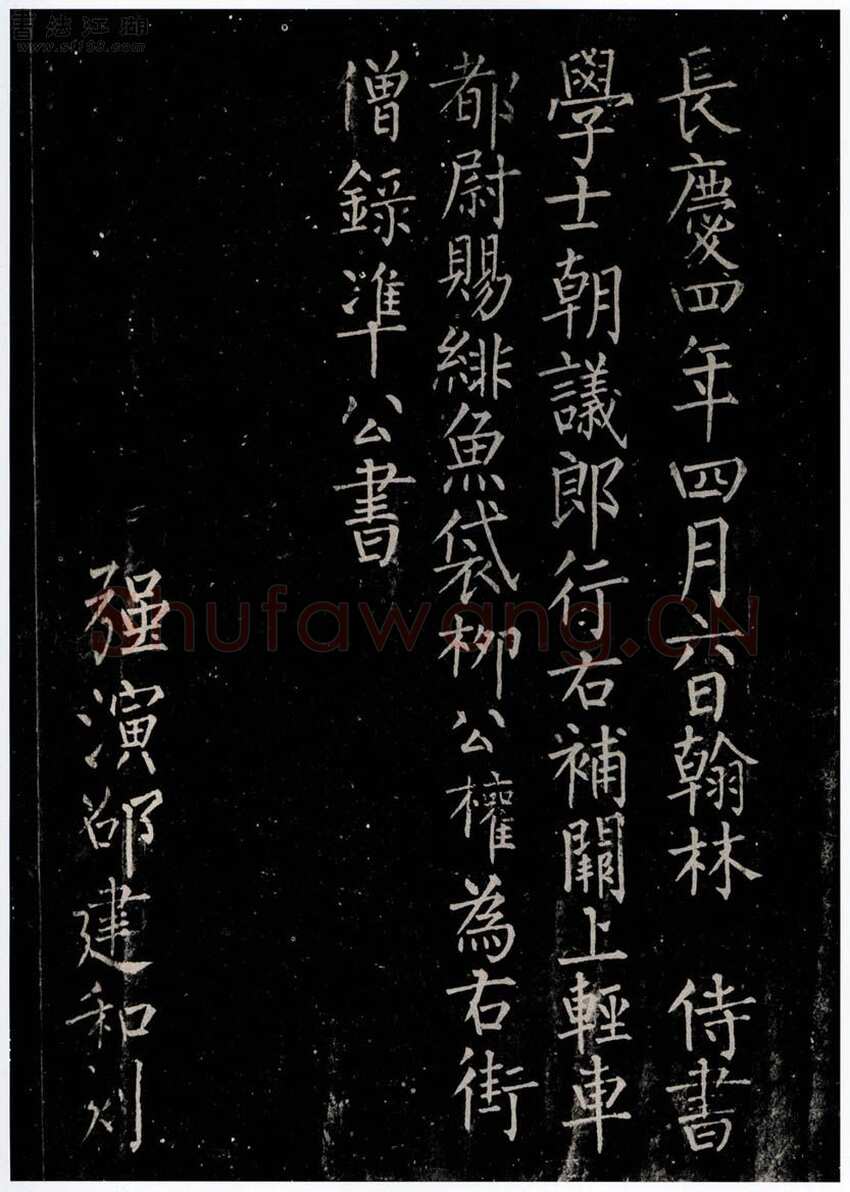 長慶四年四月六日翰林 侍書
學士朝議郎行右補闕上輕車
都尉賜緋魚袋柳公權為右街
僧錄準公書
強演邵建和刻
書法江湖
www.sf108.com
Shufawang.CN